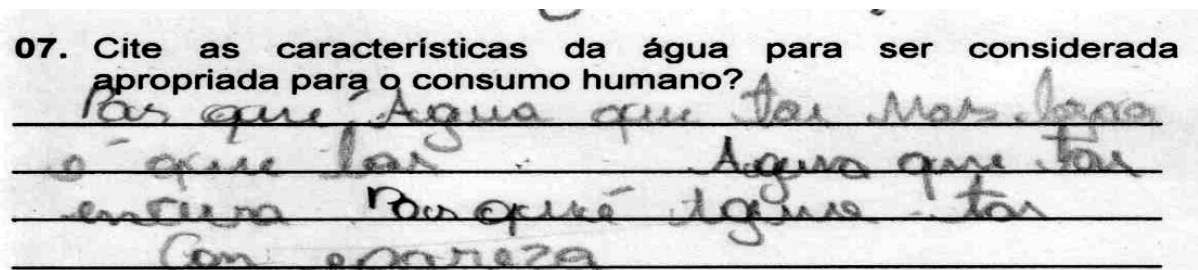 07. Cite as características da água para ser considerada
apropriada para o consumo humano?
Pas que Agua que tar Mas
e que tar Agua que tar
entura Pas queé Agua tar
Con